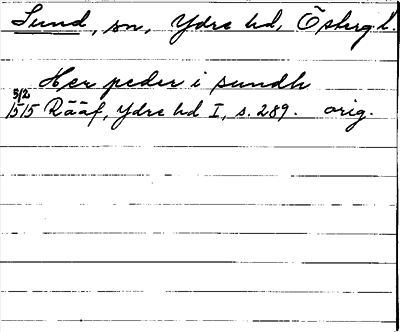 Sund, sn, Ydre hd, Östergl.
Her peder i sundh
5/2
1515 Rääf, Ydre hd I, s. 289. orig.